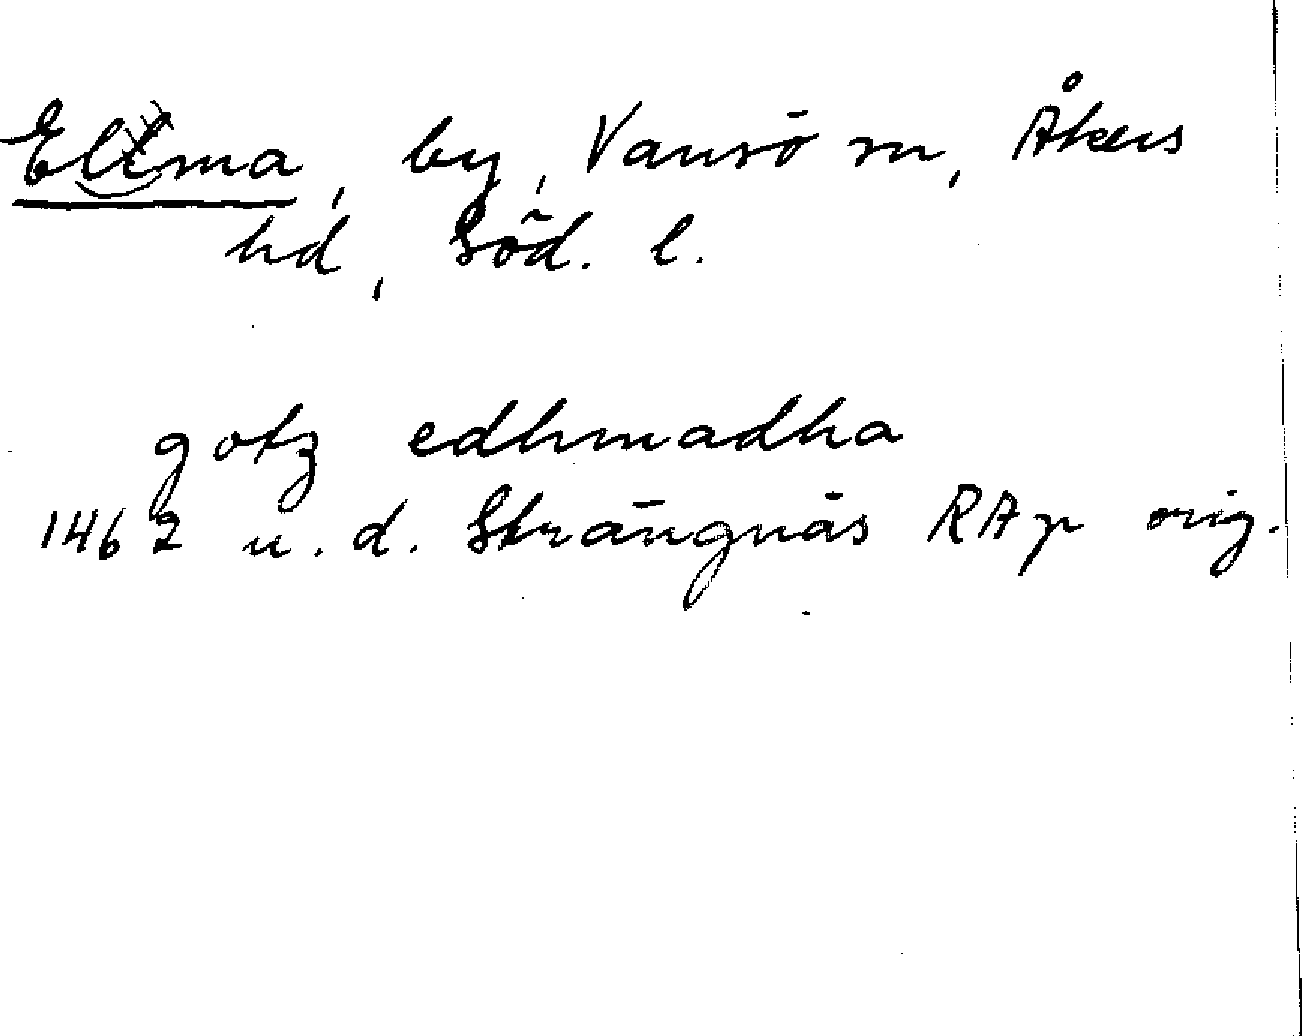 Elma, by, Vansö sn, Åkers
hd, Söd. l.
gotz edhmadha
1462 u.d. Strängnäs RAp orig.